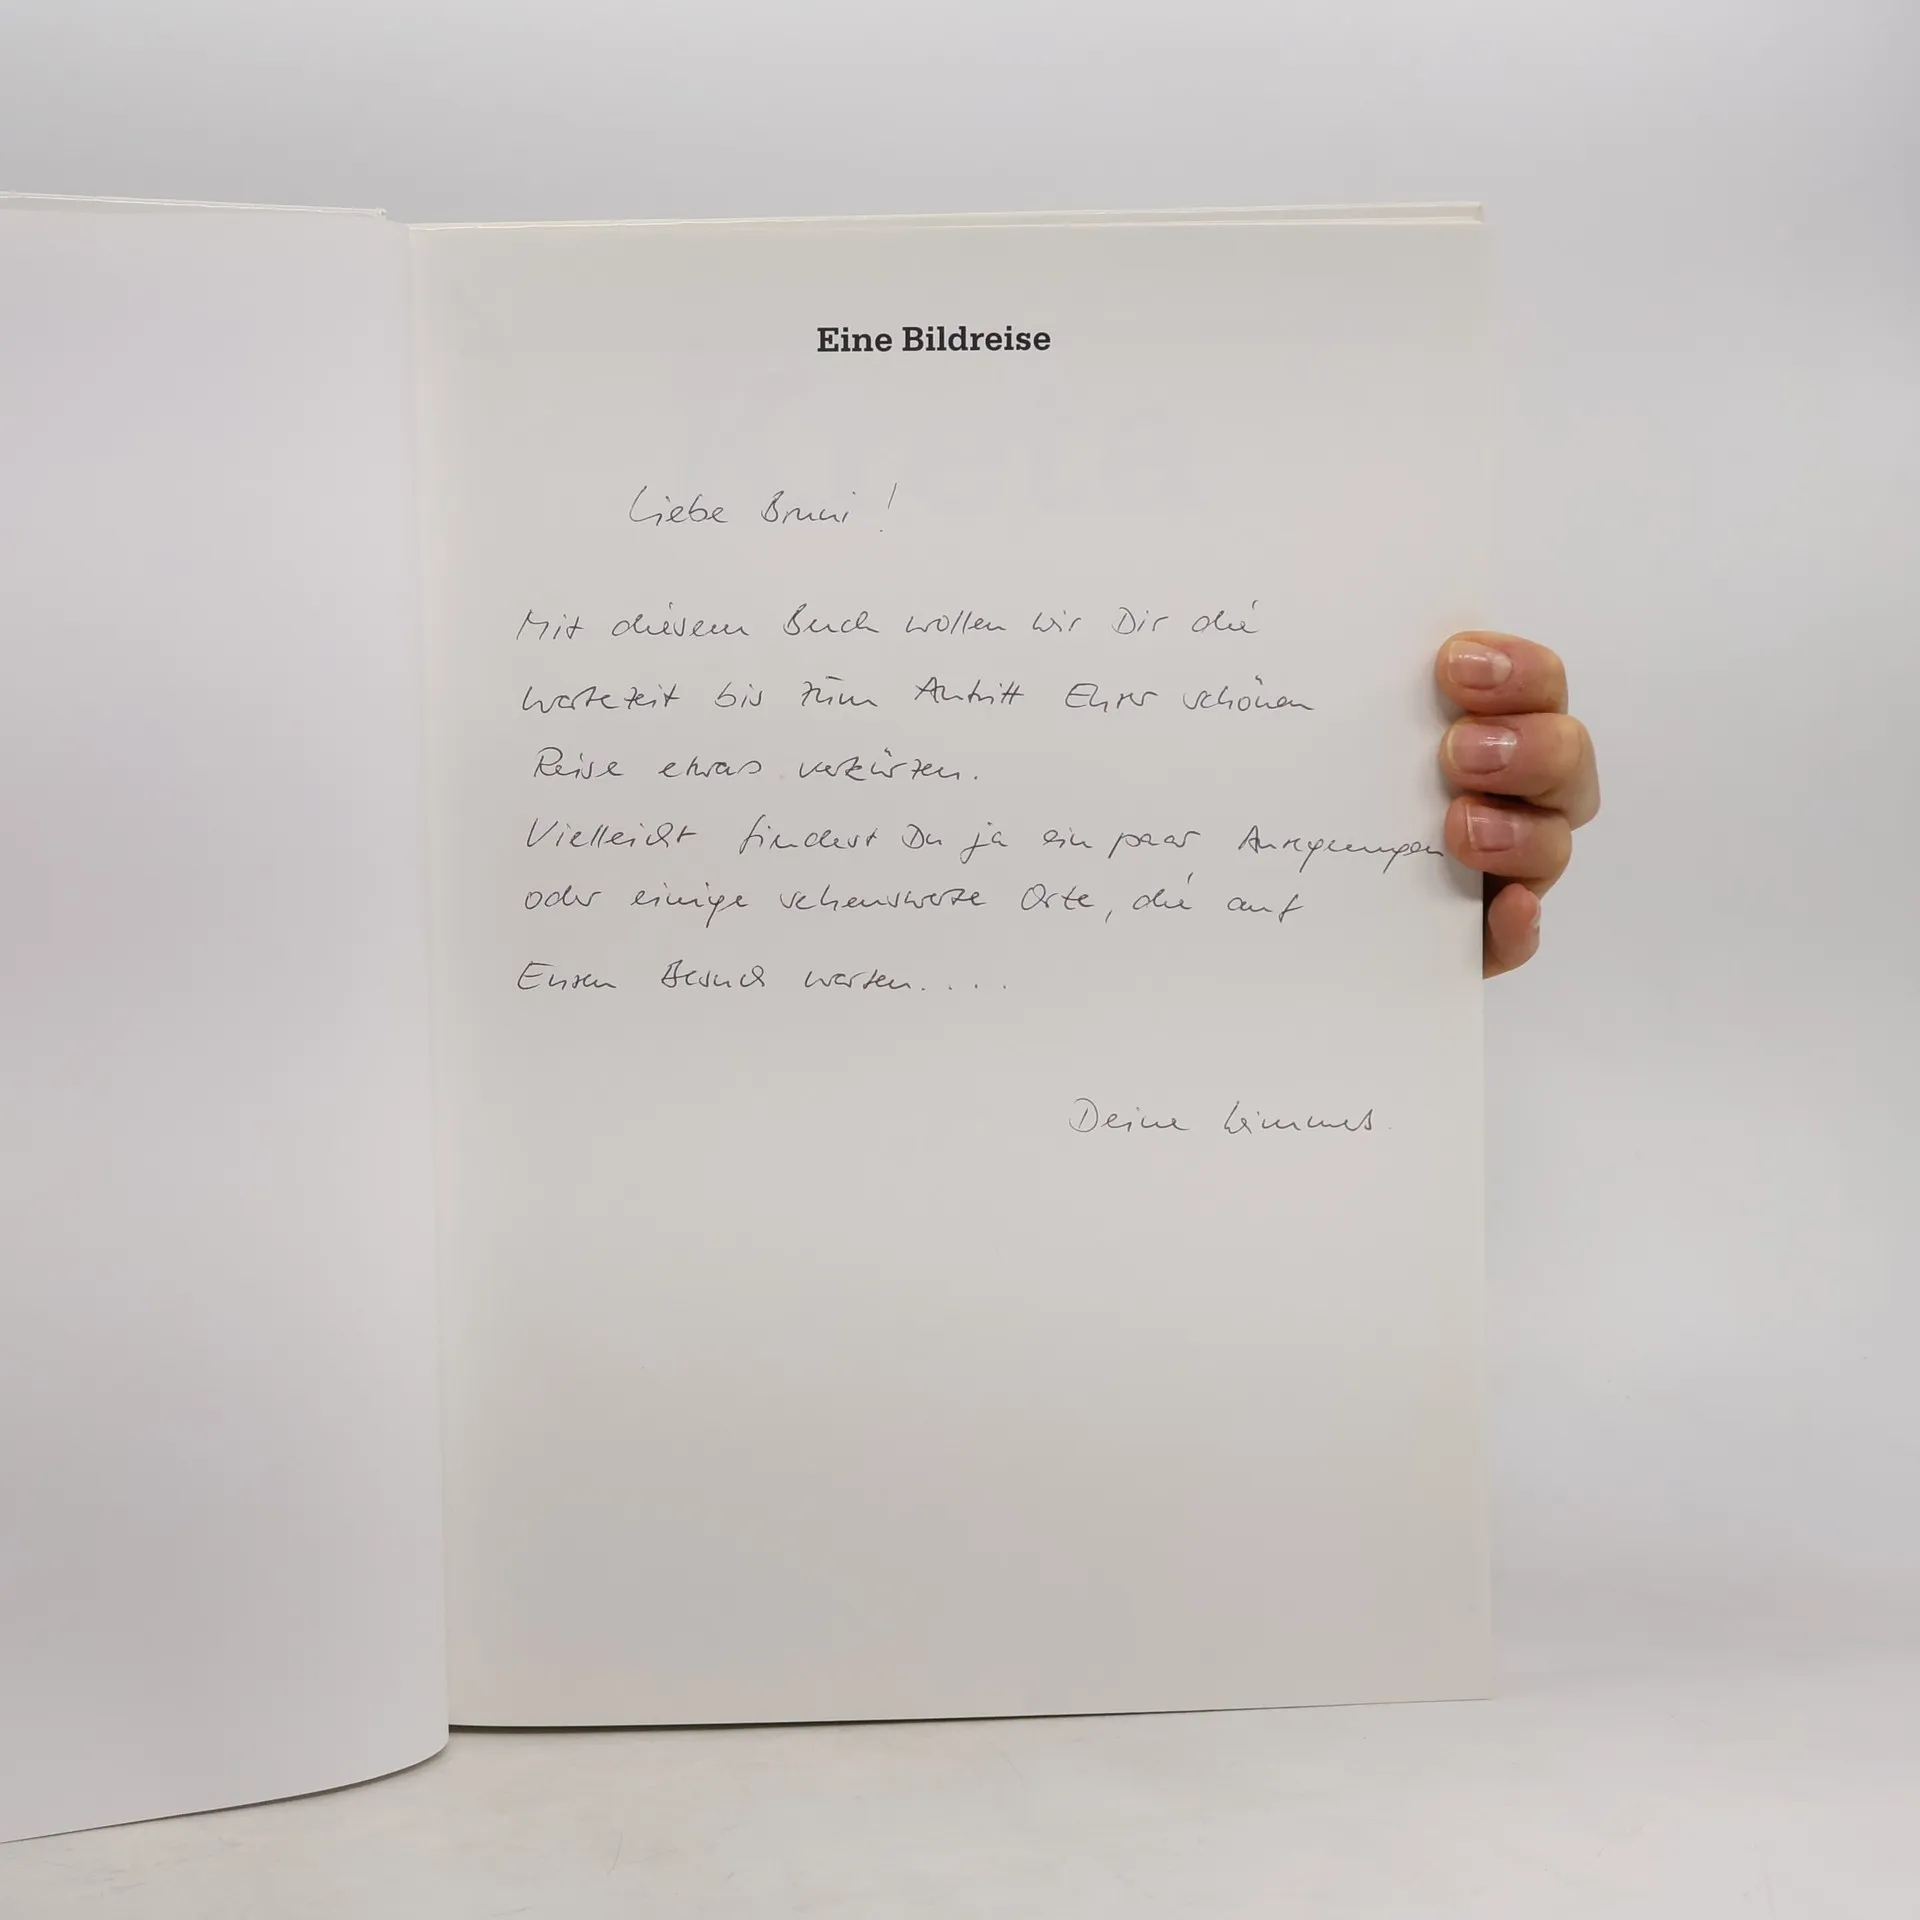 Eine Bildreise
Liebe Bruni!
Mit diesem Buch wollen wir Dir die
Wartezeit bis zum Antritt Eurer schönen
Reise etwas verkürzen.
Vielleicht findest Du ja ein paar Anregungen
oder einige sehenswerte Orte, die auf
Euren Besuch warten....
Deine